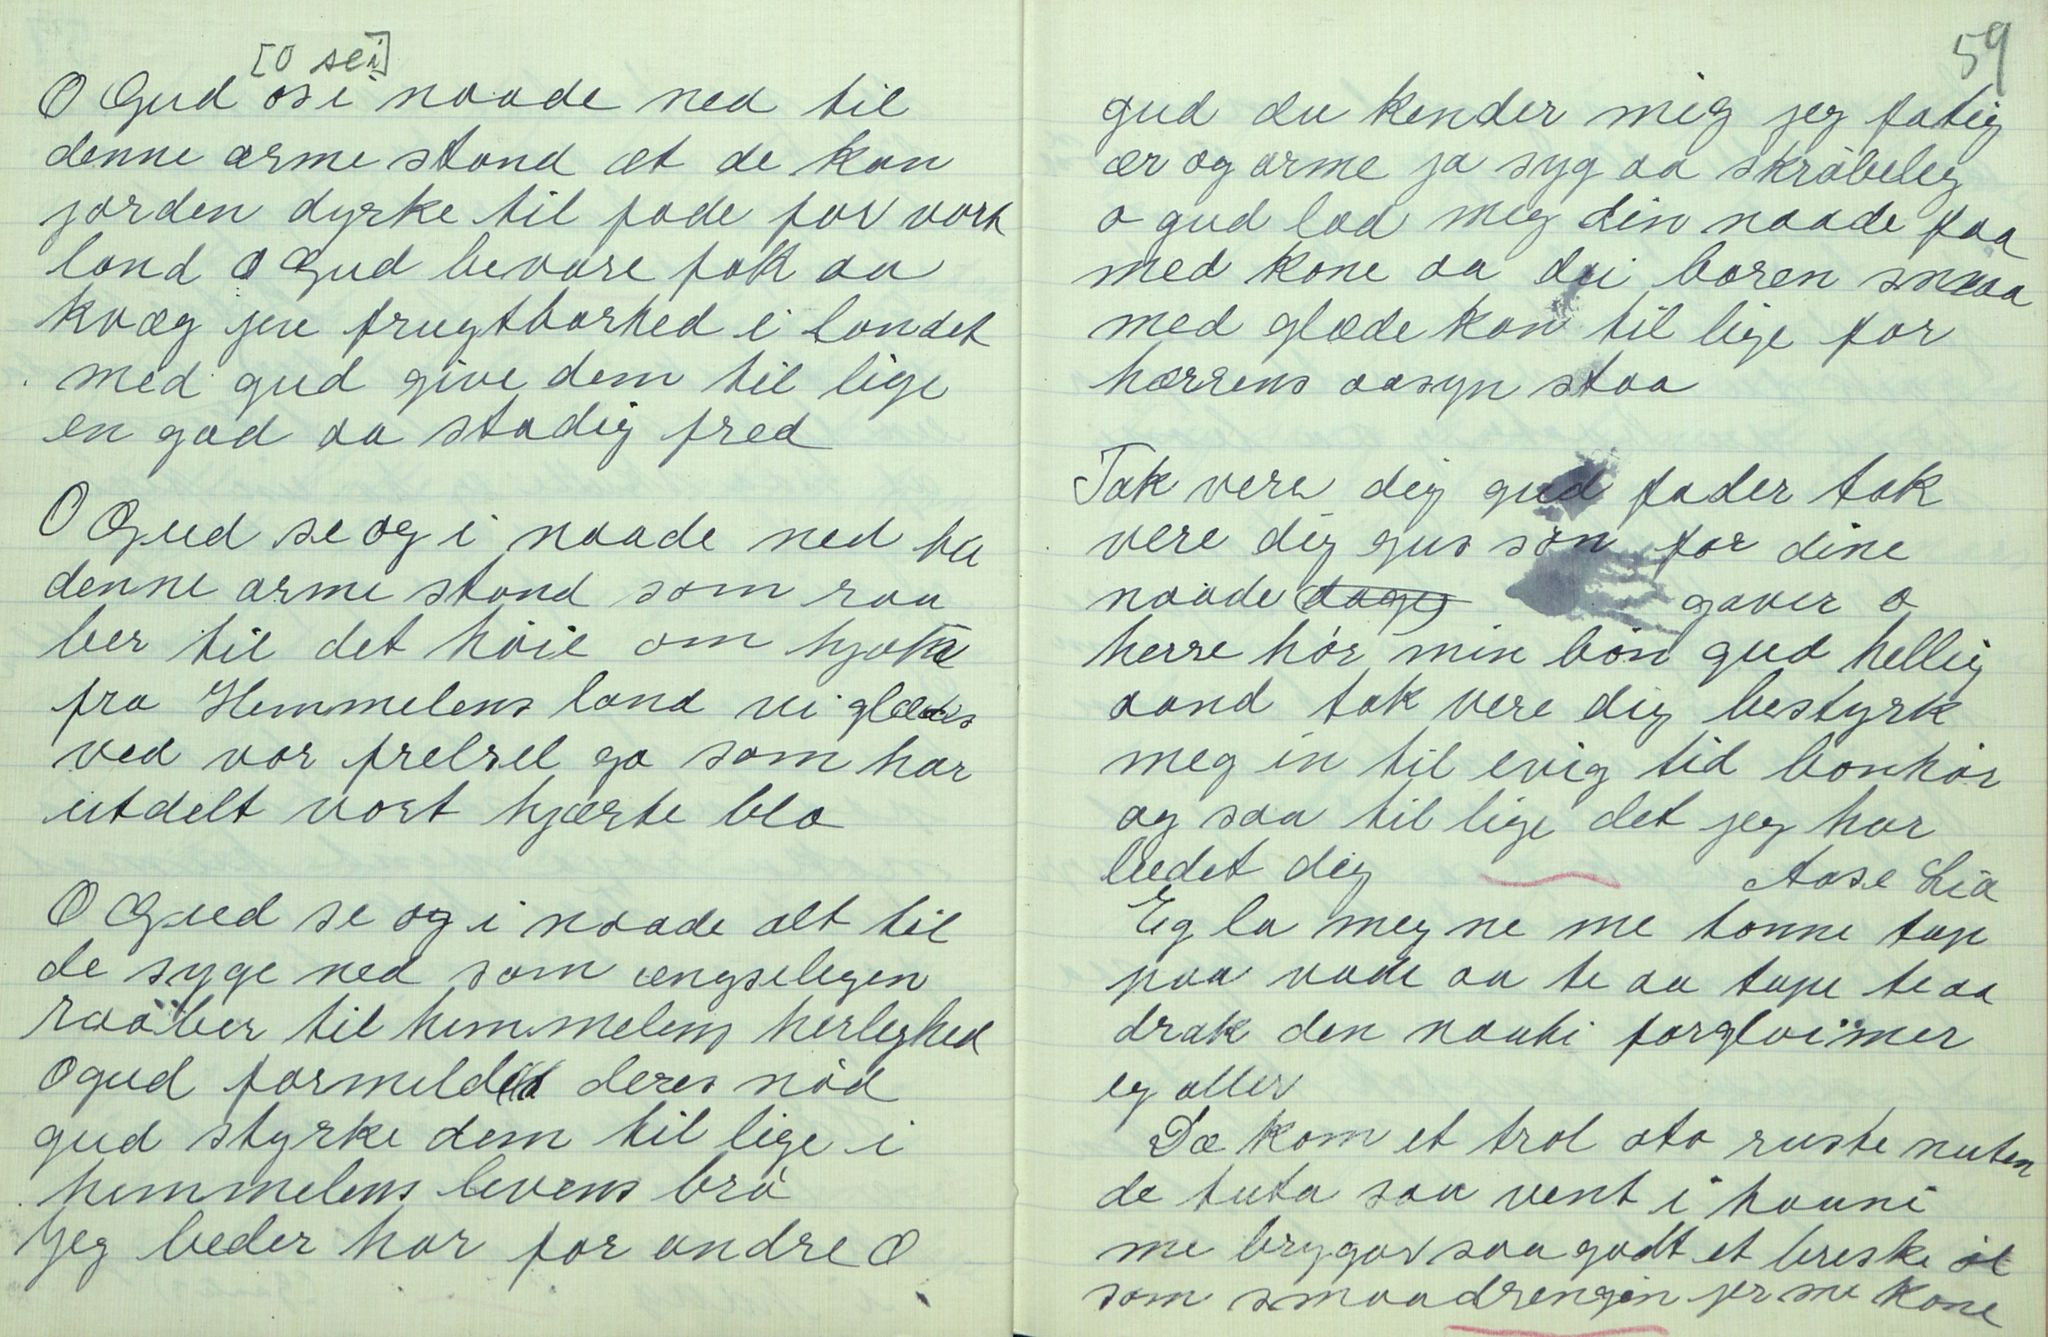 [O sei]
O Gud os i naade ned til
denne arme stand at de kan
jorden dyrke til føde for vort
land O Gud bevare fok aa
kvæg jen frugtbarhed i landet
med gud give dem til lige
en god aa stadig fred
O Gud se og i naade ned ha
denne arme stand som raa
ber til det høie om hjælp
fra Hemmelens land vi glædes
ved vor frelsel go som har
utdelt vort hjærte blo
O Gud se og i naade alt til
de syge ned som ængselegen
raaber til himmelens herleghed
O gud formilded deres nød
gud styrke dem til lige i
himmelens levens brø
Jeg beder har for andre O
59
gud du kender mig jeg fatig
ær og arme ja syg aa skrøbeleg
o gud lad meg din naade faa
med kone aa dei boren smaa
med glæde kan til lige for
hærrens aasyn staa
Tak vere dig gud fader tak
vere dig gus søn for dine
naade gaver o
herre hør min bøn gud hellig
aand tak vere dig bestyrk
meg in til evig tid bonhør
og saa til lige det jeg har
bedet dig
Aase Lia
Eg la meg ne me tonne tape
paa vade aa te aa tape te aa
drak den nauti forgloimer
eg aller
Dæ kom et trol oto ruste nuten
de tuta saa vent i hauni
me brygar saa godt et bereske øl
som smaadrengjin jer me kone